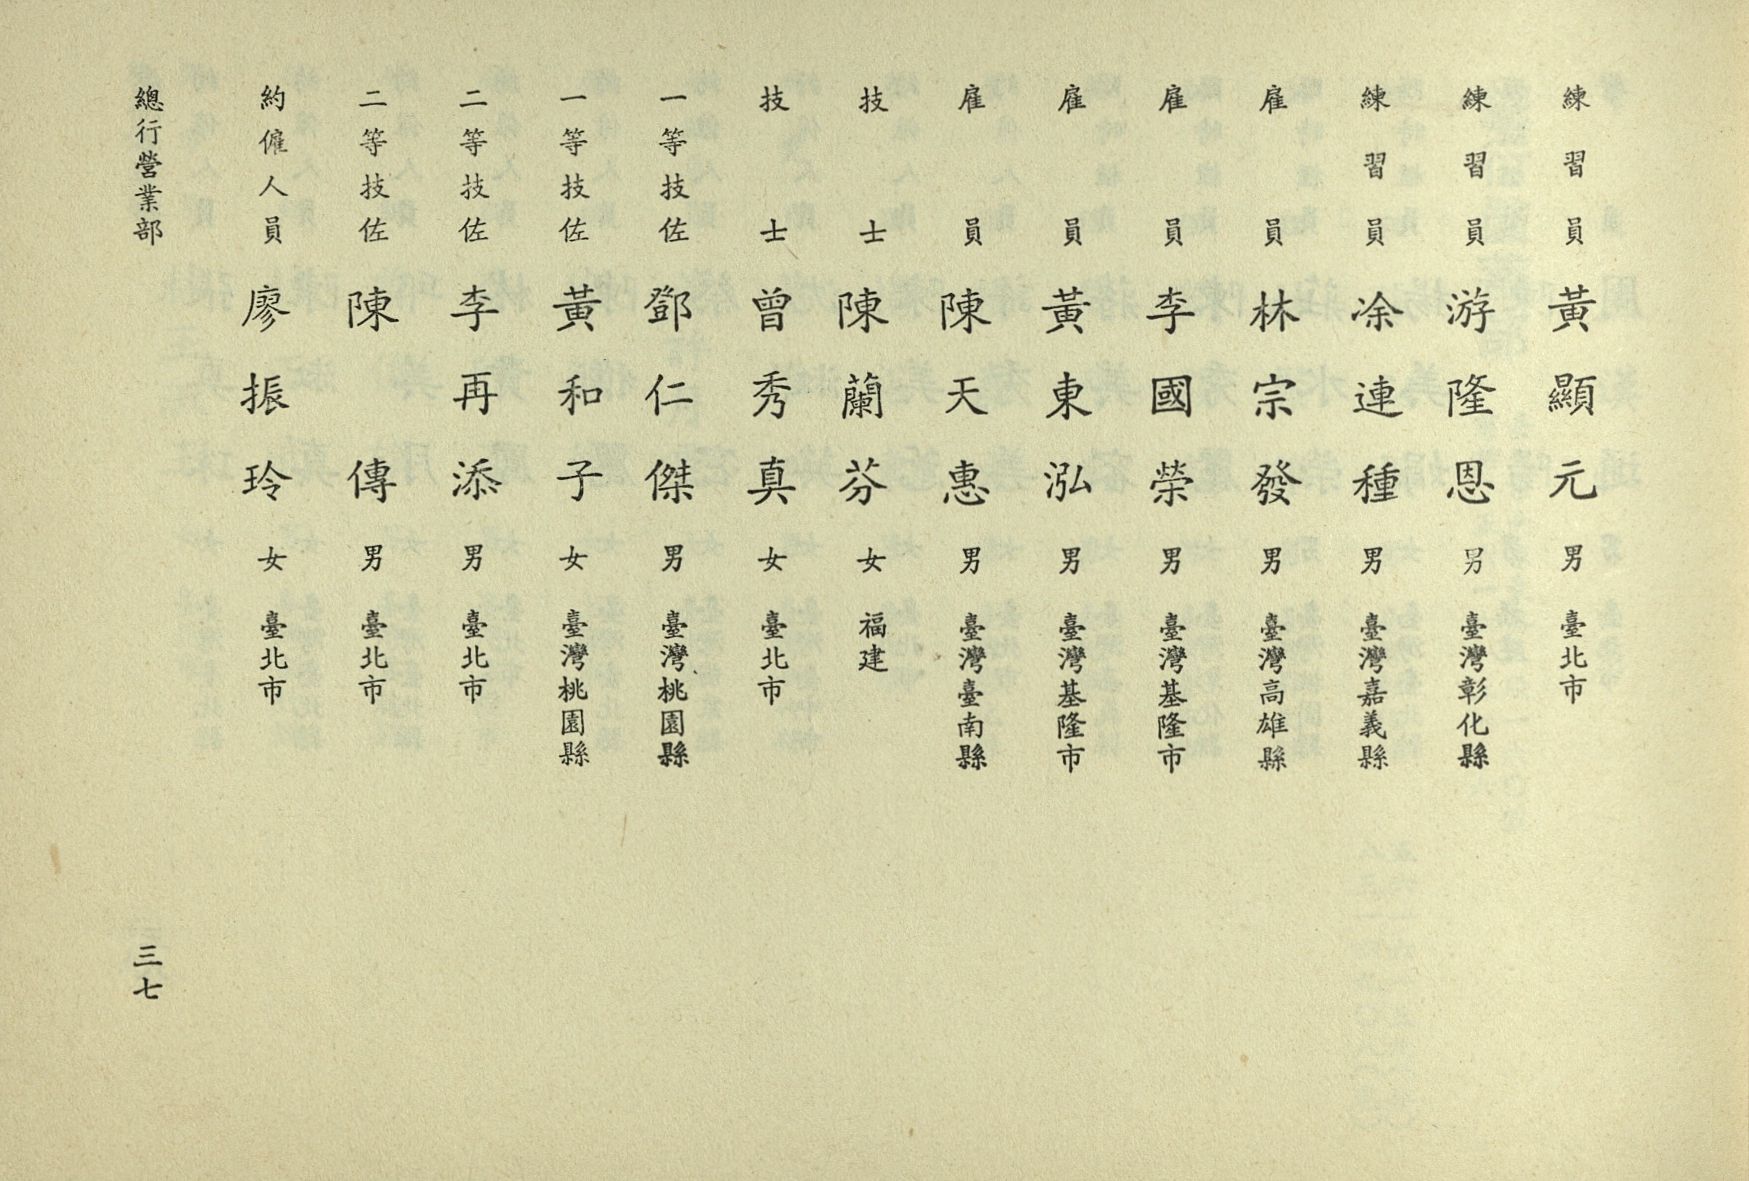 練習員 黃顯元 男 臺北市
練習員 游隆恩 男 臺灣彰化縣
練習員 凃連種 男 臺灣嘉義縣
雇員 林宗發 男 臺灣高雄縣
雇員 李國榮 男 臺灣基隆市
雇員 黃東泓 男 臺灣基隆市
雇員 陳天惠 男 臺灣臺南縣
技士 陳蘭芬 女 福建
技士 曾秀真 女 臺北市
一等技佐 鄧仁傑 男 臺灣桃園縣
一等技佐 黃和子 女 臺灣桃園縣
二等技佐 李再添 男 臺北市
二等技佐 陳傳 男 臺北市
約僱人員 廖振玲 女 臺北市
總行營業部 三七